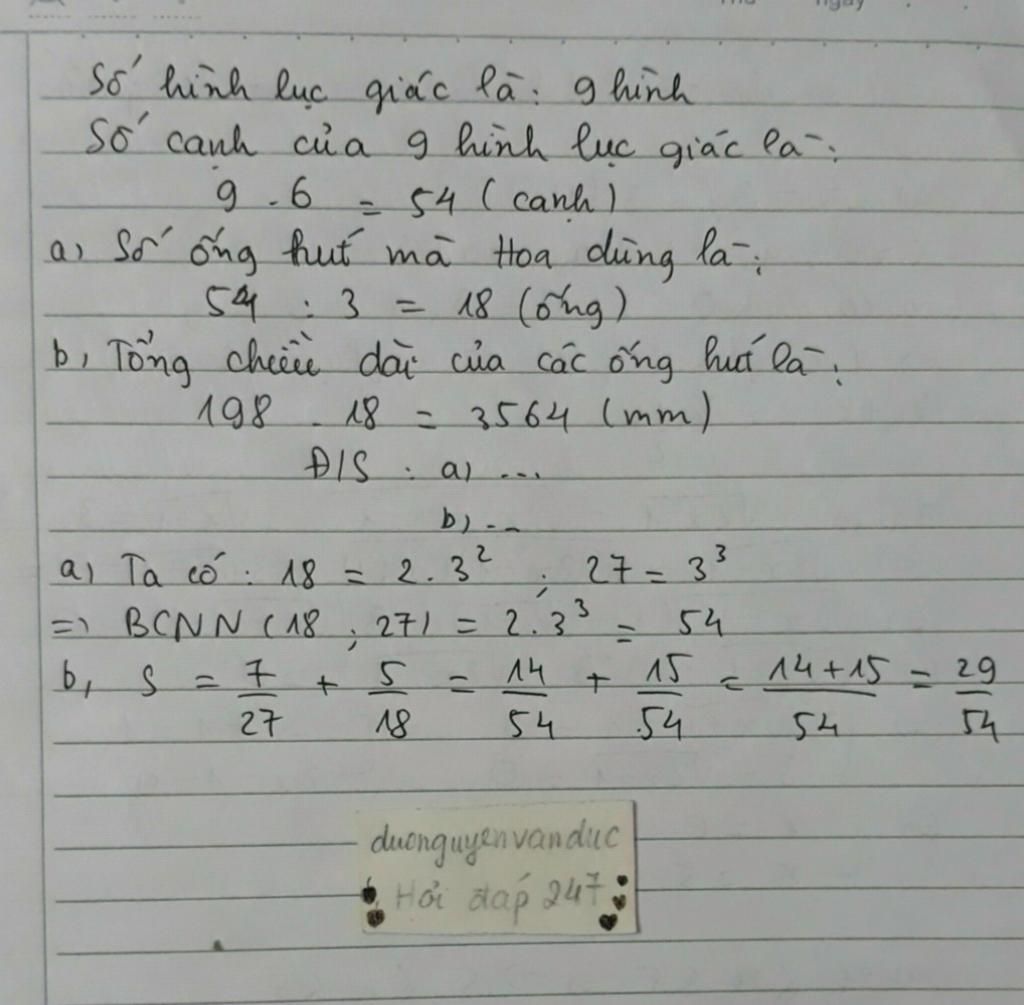 Số hình lục giác là: 9 hình
Số cạnh của 9 hình lục giác là:
9 . 6 = 54 (cạnh)
a) Số ống hút mà Hoa dùng là:
54 : 3 = 18 (ống)
b, Tổng chiều dài của các ống hút là:
198 . 18 = 3564 (mm)
Đ/S : a) ...
b) ..
a) Ta có : 18 = 2.3² ; 27 = 3³
=> BCNN (18 ; 27) = 2.3³ = 54
b, S = 7/27 + 5/18 = 14/54 + 15/54 = 14+15/54 = 29/54
duonguyenvanduc
Hỏi đáp 247